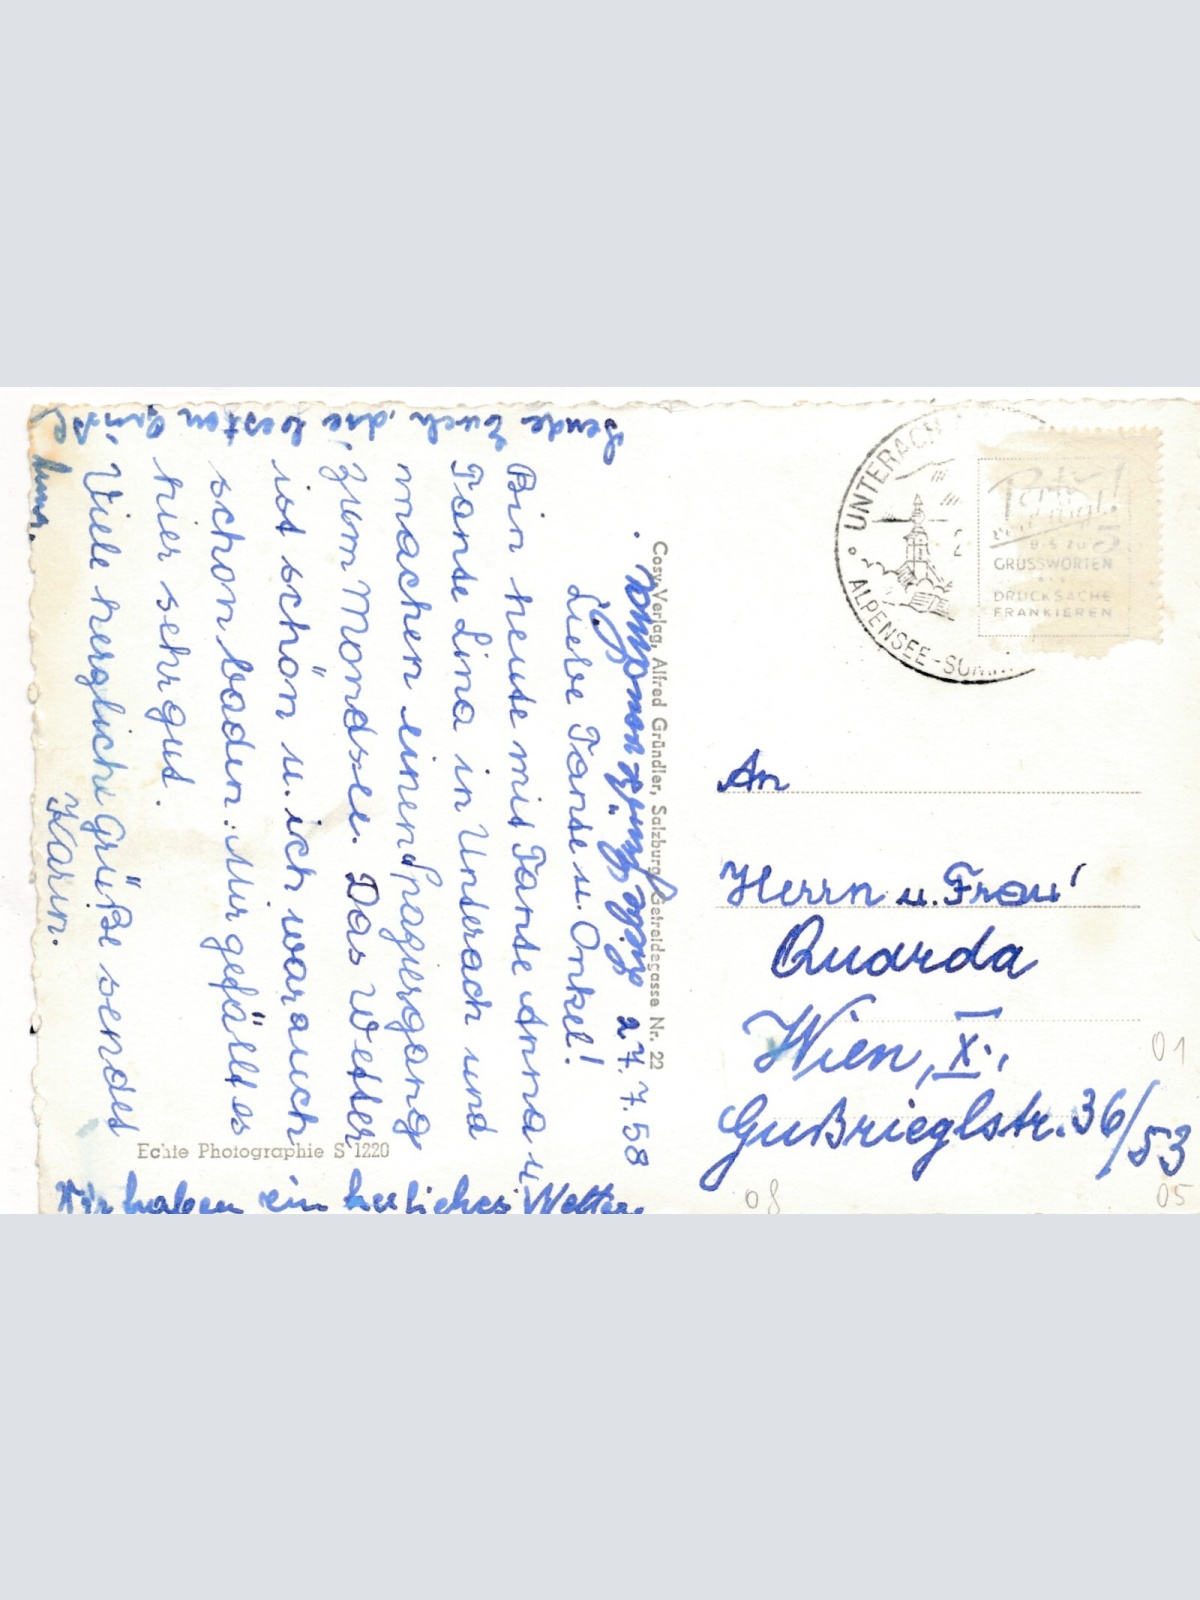 27.7.58
Liebe Tante u. Onkel!
Bin heute mit Tante Anna u.
Tante Lina in Unterach und
machen einen Spaziergang
zum Mondsee. Das Wetter
ist schön u. ich war auch
schon baden. Mir gefällt es
hier sehr gut.
Viele herzliche Grüße sendet
Karin.
Wir haben ein herrliches Wetter.
Sende Euch die besten Grüße
Echte Photographie S 1220
Cosy-Verlag, Alfred Gründler, Salzburg, Getreidegasse Nr. 22
UNTERACH
ALPENSEE-
BIS ZU 5
GRUSSWORTEN
ALS
DRUCKSACHE
FRANKIEREN
An
Herrn u. Frau
Quarda
Wien, X.,
Gußrieglstr. 36/53
01
08
05